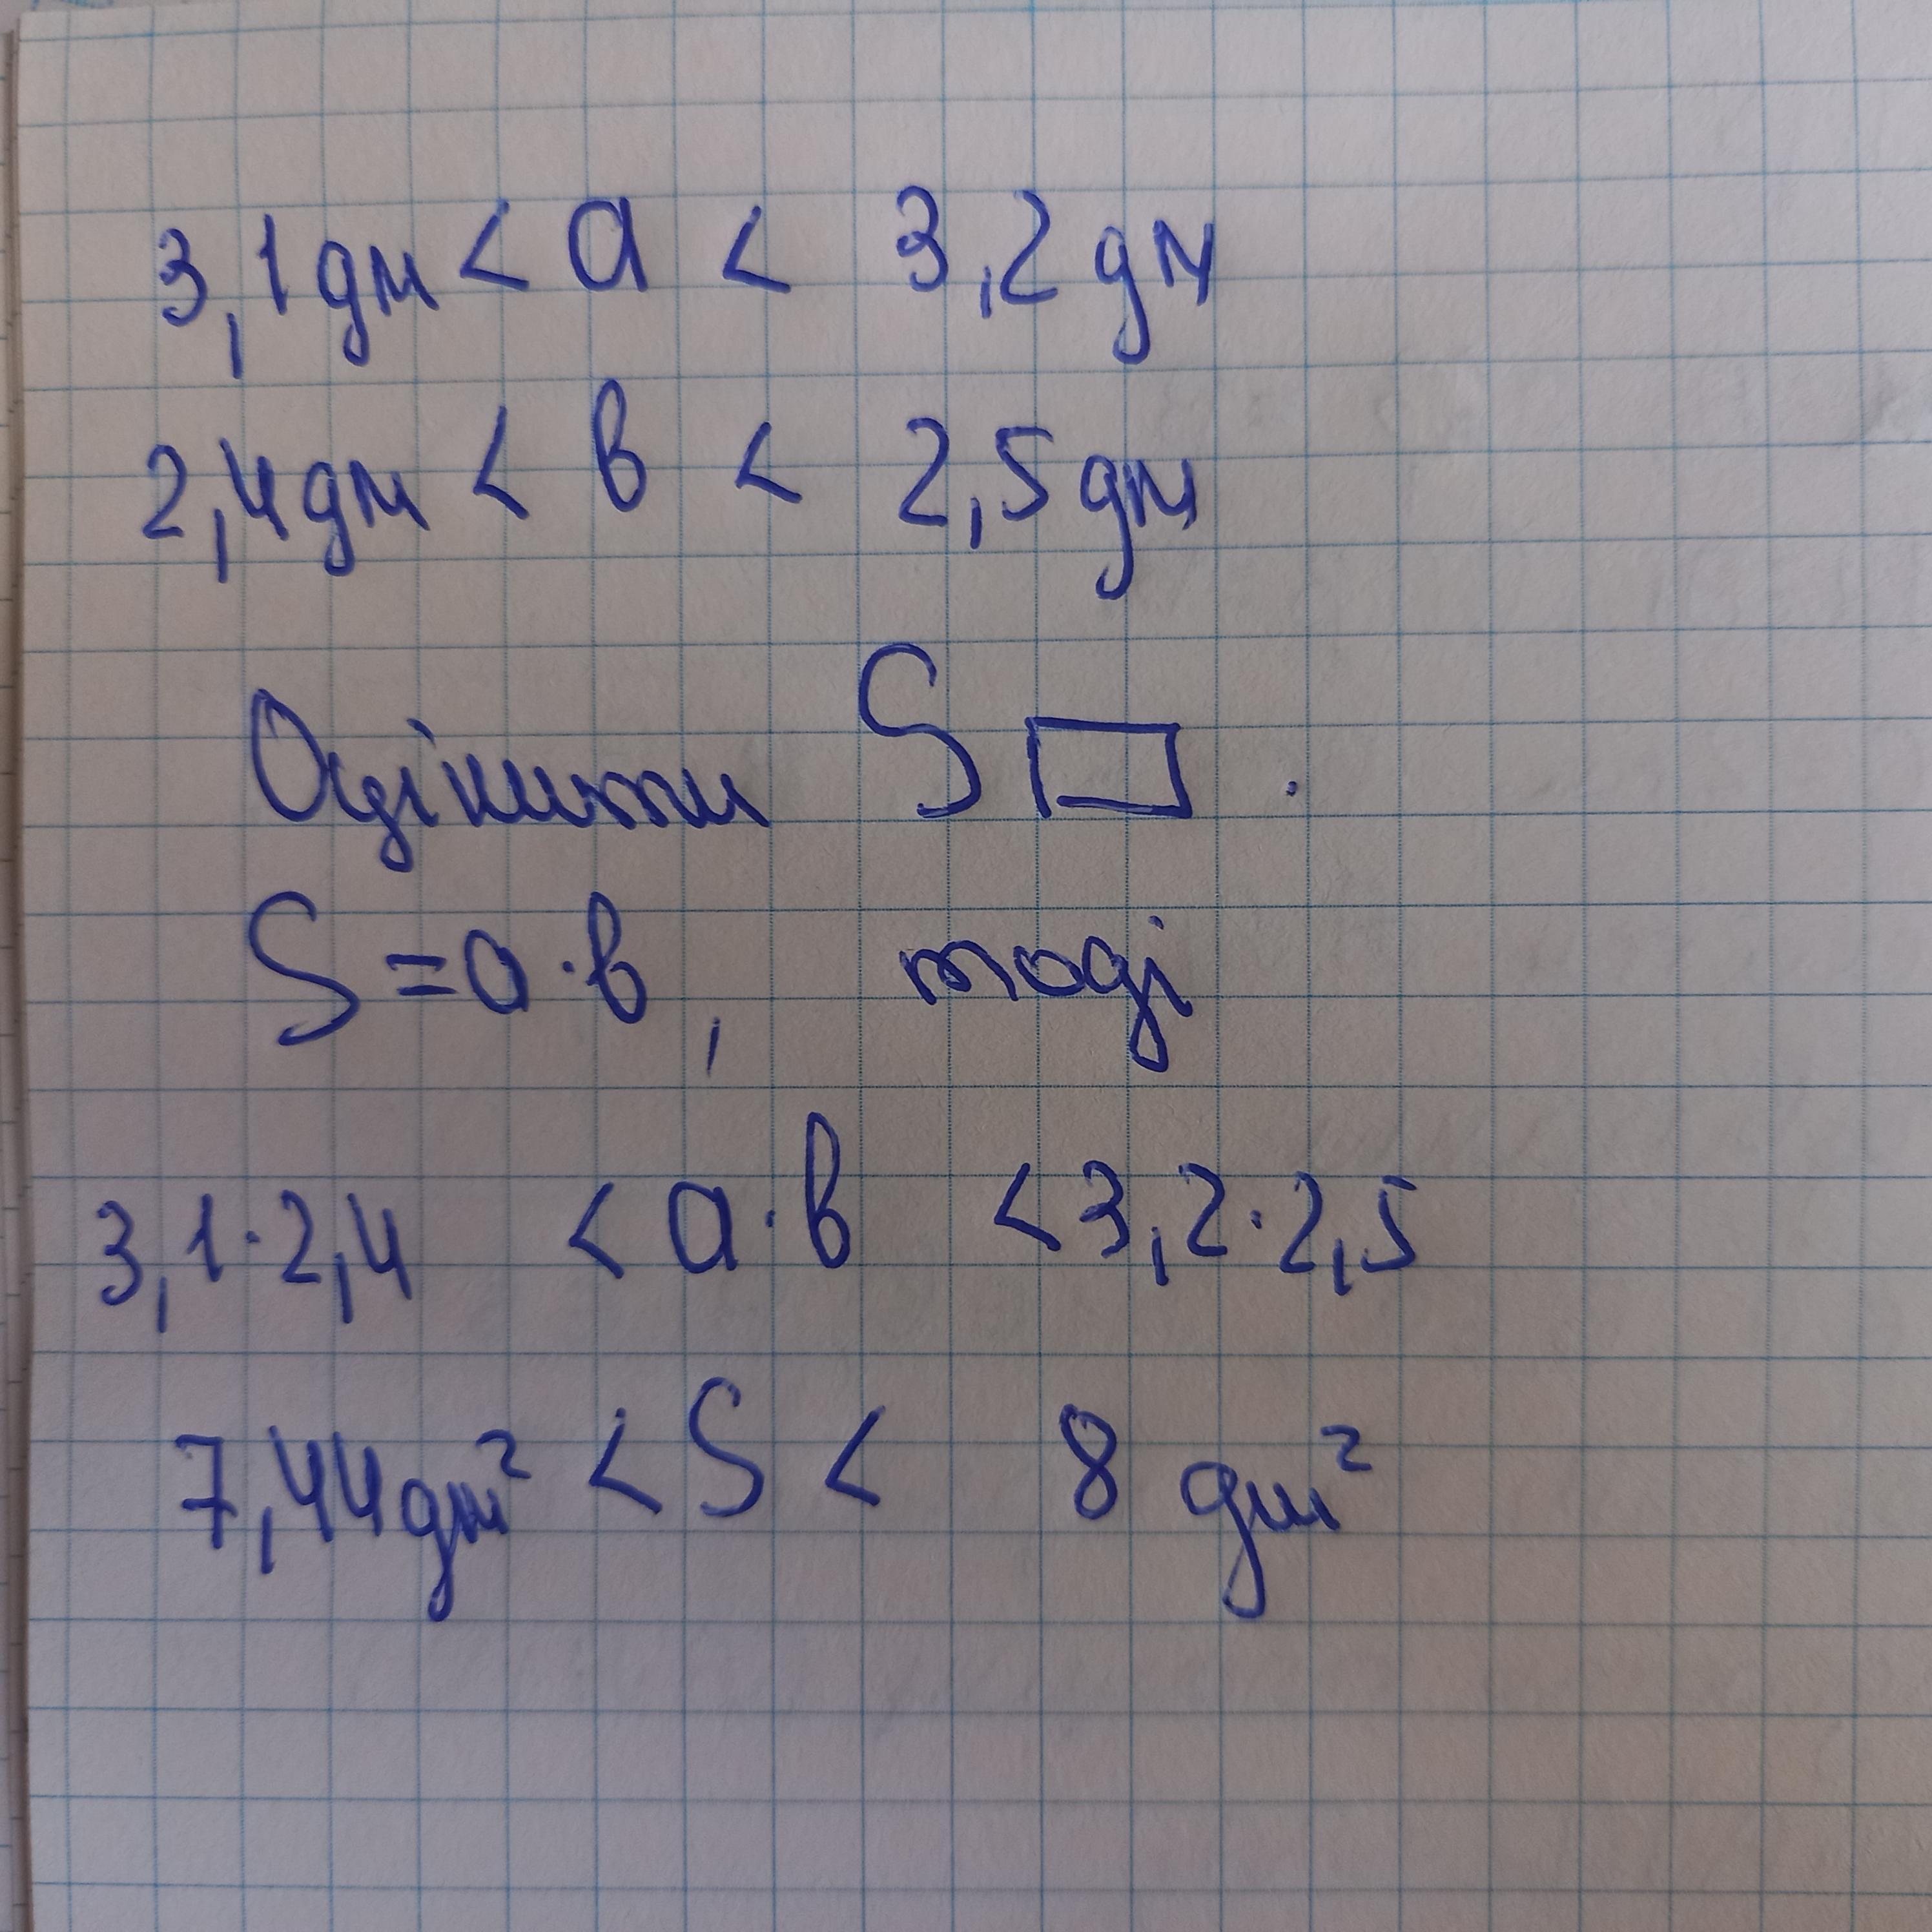 3,1 дм < a < 3,2 дм
2,4 дм < b < 2,5 дм
Оцінити S ▭.
S = a · b, тоді
3,1 · 2,4 < a · b < 3,2 · 2,5
7,44 дм² < S < 8 дм²